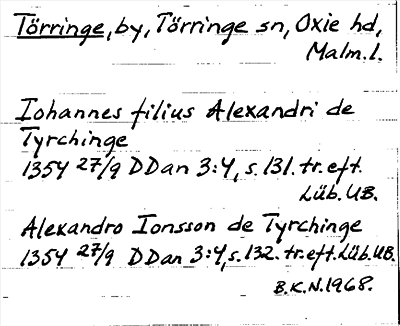 Törringe, by, Törringe sn, Oxie hd,
Malm. l.
Iohannes filius Alexandri de
Tyrchinge
1354 27/9 DDan 3:4, s. 131. tr. eft.
Lüb. UB.
Alexandro Ionsson de Tyrchinge
1354 27/9 DDan 3:4, s. 132. tr. eft. Lüb. UB.
B.K.N. 1968.